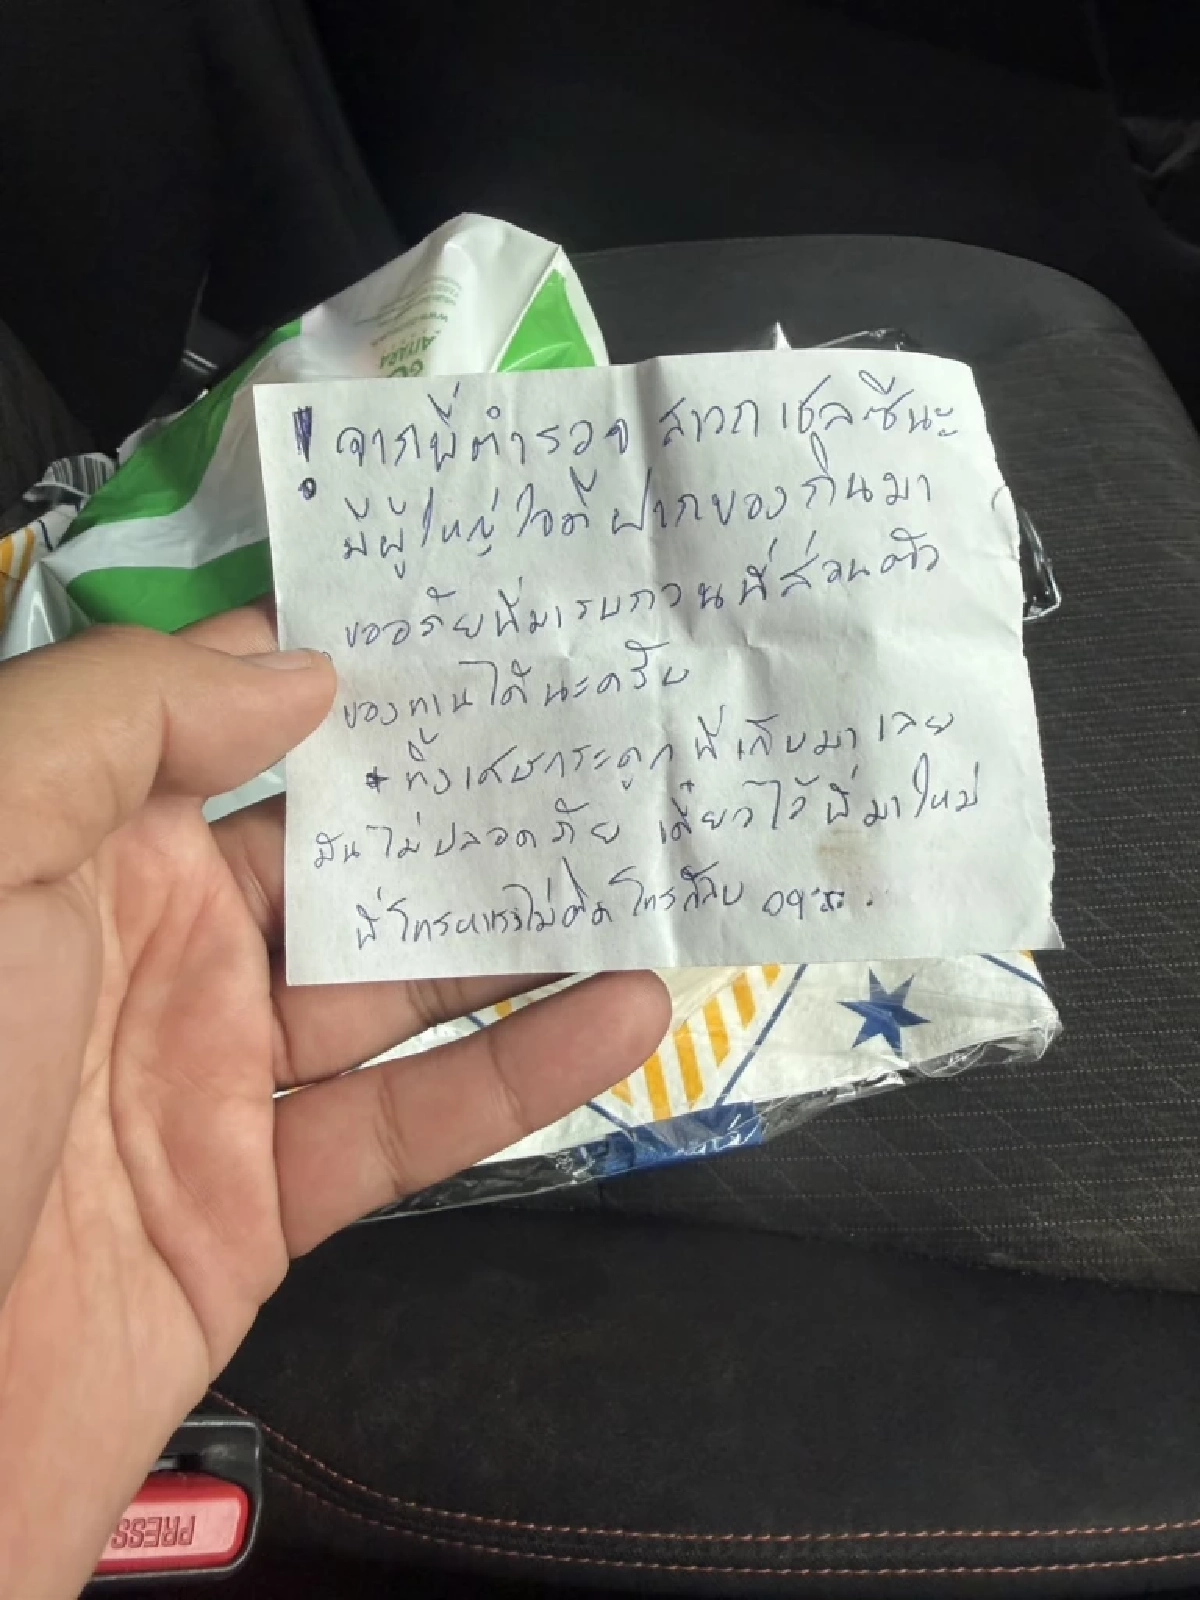 ! จากพี่ตำรวจ สาวก เชลซีนะ
มีผู้ใหญ่ใจดี ฝากของกินมา
ขออภัยพี่มารบกวนพี่ส่วนตัว
ของทานได้นะครับ
* ทิ้งเศษกระดูก พี่เก็บมาเลย
มันไม่ปลอดภัย เดี๋ยวไว้พี่มาใหม่
พี่โทรหาแรงไม่ติด โทรกลับ 09
PRESS